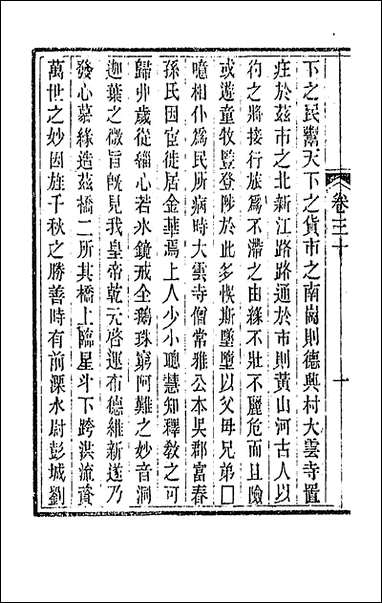 下之民鬻天下之貨市之南崗則德興村大雲寺置
莊於茲市之北新江路路通於市則黃山河古人以
彴之將接行旅為不滯之由繇不壯不麗危而且險
或遊童牧豎登陟於此多悞斯墮墮以父毋兄弟□
噫相仆為民所病時大雲寺僧常雅公本吳郡富春
孫氏因宦徙居金華焉上人少小聰慧知釋教之可
歸丱歲從緇心若氷鏡戒全鵝珠窮阿難之妙音洞
迦葉之微旨旣見我皇帝乾元啓運布德維新遂乃
發心募緣造茲橋二所其橋上臨星斗下跨洪流資
萬世之妙因旌千秋之勝善時有前溧水尉彭城劉
卷三十
一